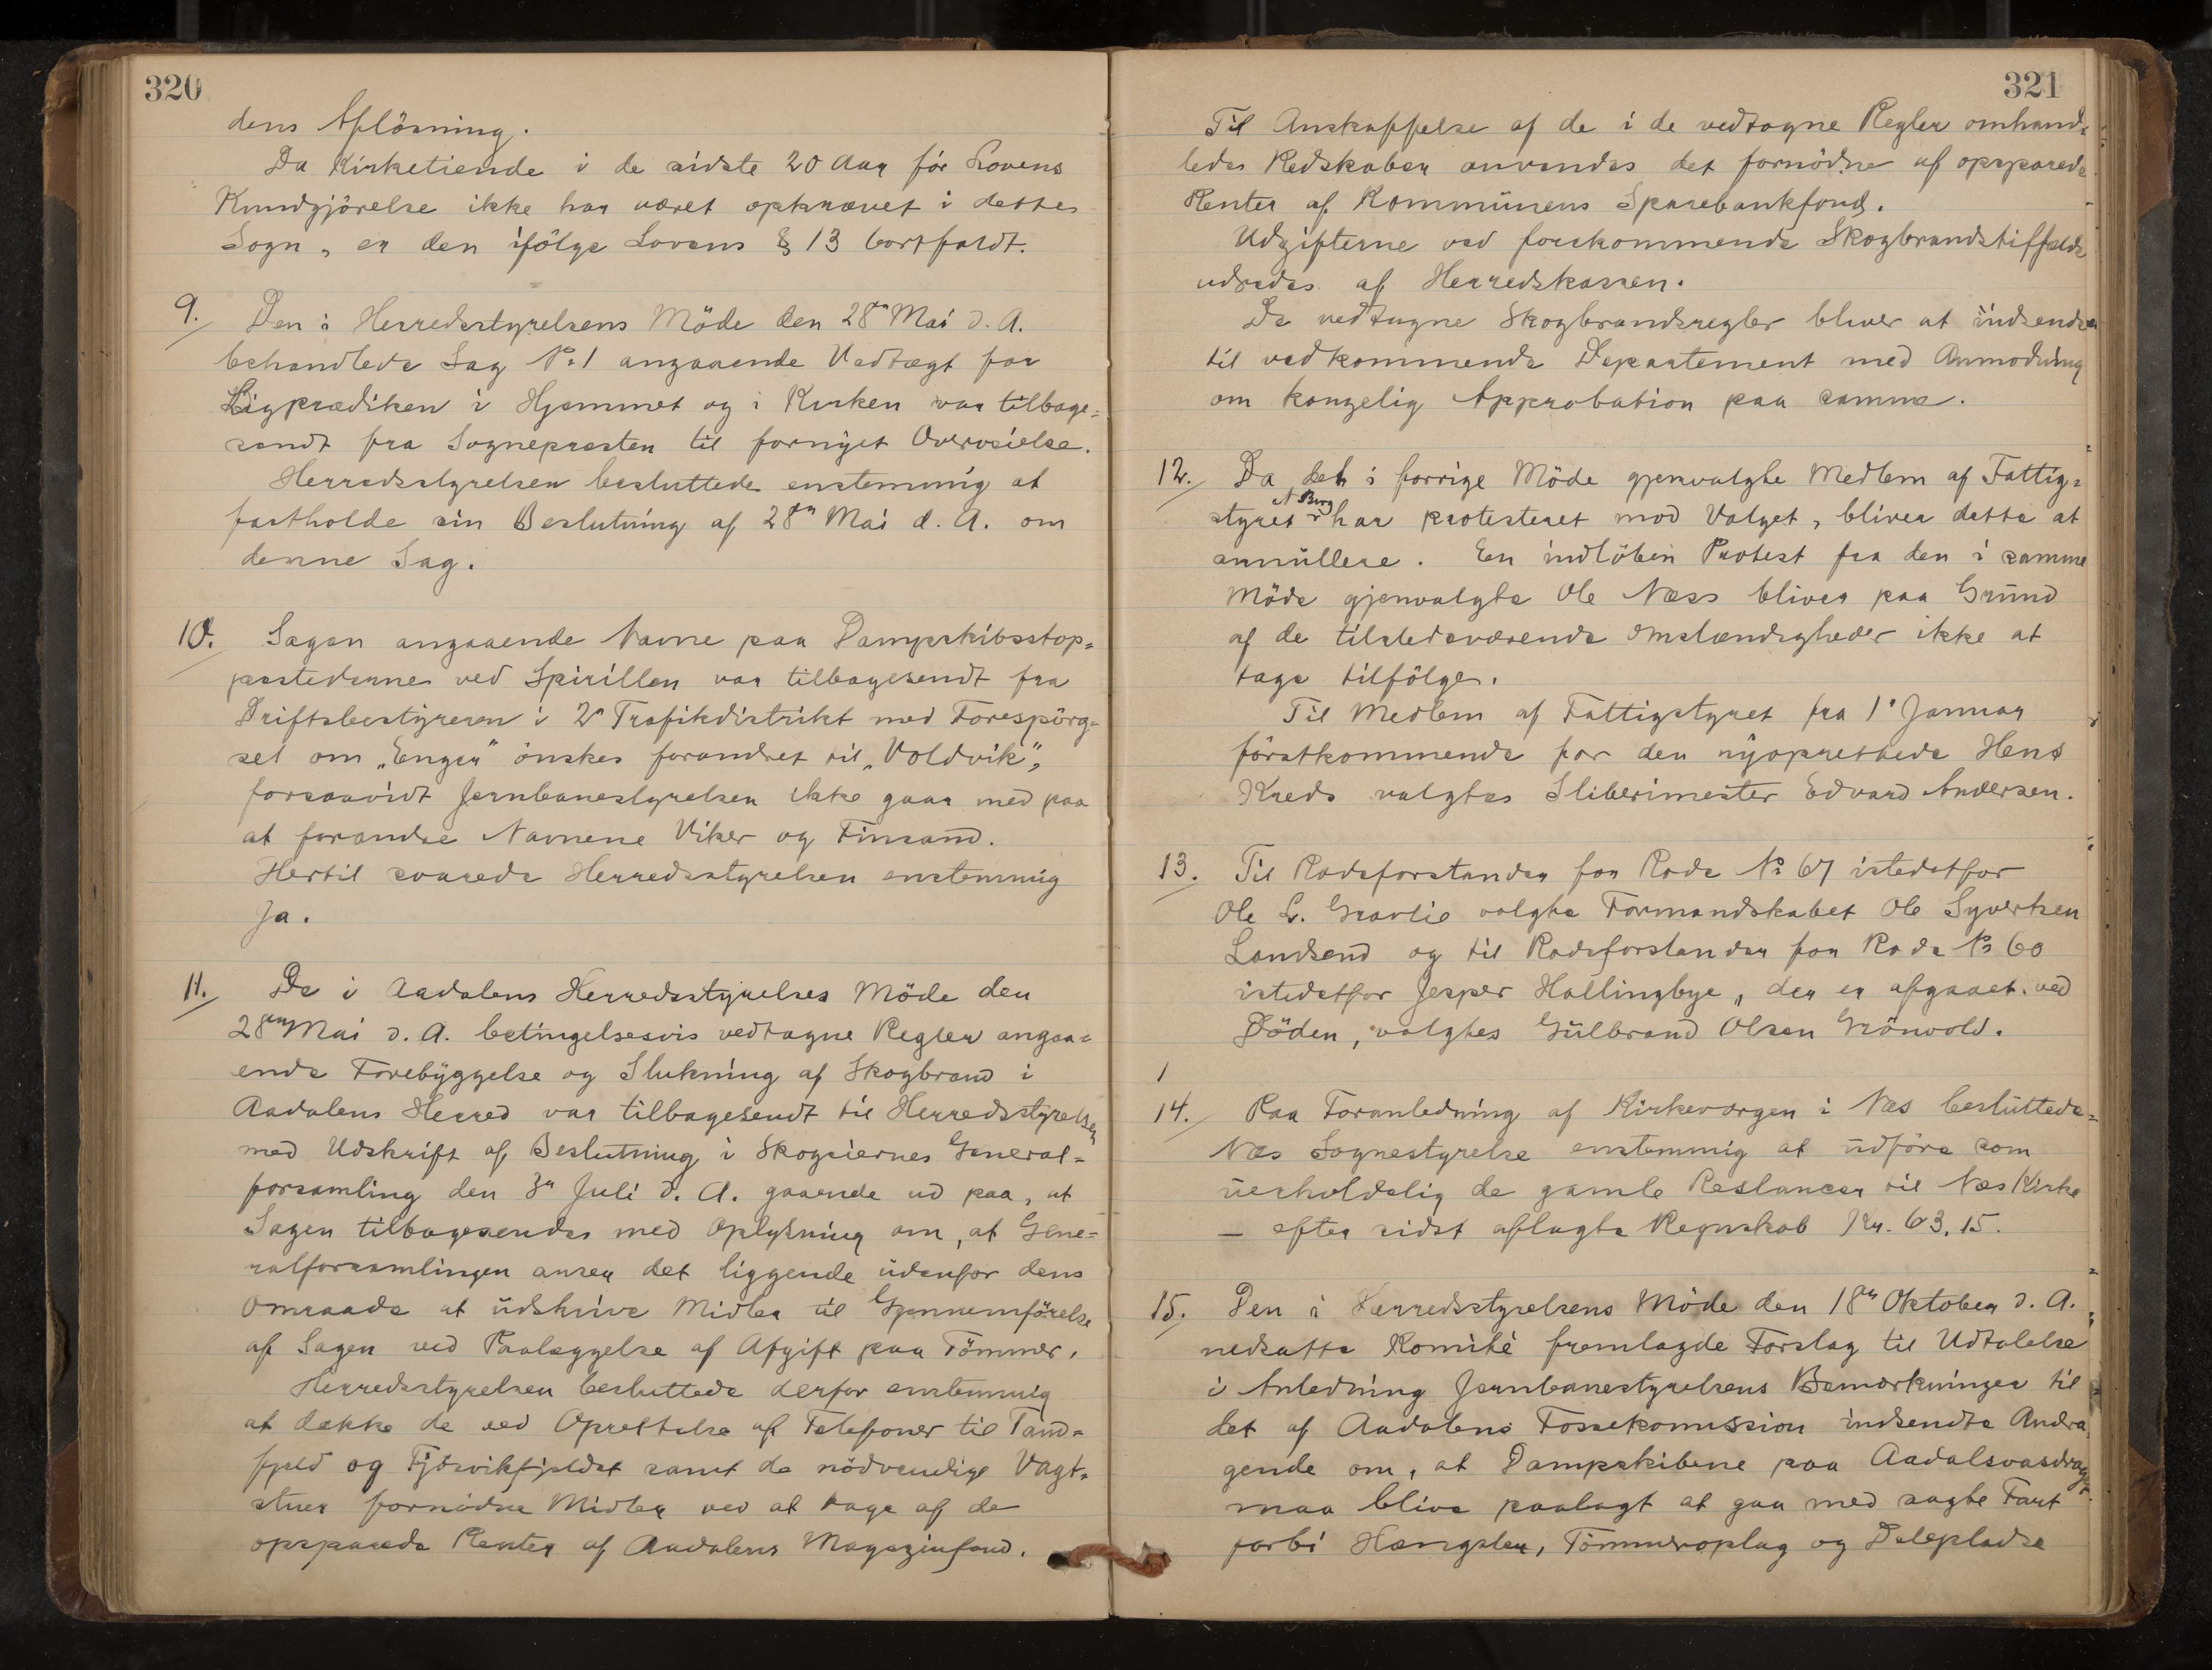 320
dens Aflösning.
Da Kirketiende i de sidste 20 Aar för Lovens
Kundgjörelse ikke har været opkrævet i dettes
Sogn, er den ifölge Lovens § 13 bortfaldt.
9. Den i Herredsstyrelsens Möde den 28de Mai d. A.
behandlede Sag No 1 angaaende Vedtægt for
Ligprædiken i Hjemmet og i Kirken var tilbage=
sendt fra Sognepresten til fornyet Overveielse.
Herredsstyrelsen besluttede enstemmig at
fastholde sin Beslutning af 28de Mai d. A. om
denne Sag.
10. Sagen angaaende Navne paa Dampskibsstop=
pestederne ved Spirillen var tilbagesendt fra
Driftsbestyreren i 2n Trafikdistrikt med Forespörg=
sel om „Enger" önskes forandret til „Voldvik",
forsaavidt Jernbanestyrelsen ikke gaar med paa
at forandre Navnene Viker og Finsand.
Hertil svarede Herredsstyrelsen enstemmig
Ja.
11. De i Aadalens Herredsstyrelses Möde den
28de Mai d. A. betingelsesvis vedtagne Regler angaa=
ende Forebyggelse og Slukning af Skogbrand i
Aadalens Herred var tilbagesendt til Herredsstyrelsen
med Udskrift af Beslutning i Skogeiernes General=
forsamling den 3n Juli d. A. gaaende ud paa, at
Sagen tilbagesendes med Oplysning om, at Gene=
ralforsamlingen anser det liggende udenfor dens
Omraade at udskrive Midler til Gjennemförelse
af Sagen ved Paalæggelse af Afgift paa Tömmer.
Herredsstyrelsen besluttede derfor enstemmig
at dække de ved Oprettelse af Telefoner til Tand=
fjeld og Fjösvikfjeldet samt de nödvendige Vagt=
stuer fornödne Midler ved at tage af de
opsparede Renter af Aadalens Magazinfond.
321
Til Anskaffelse af de i de vedtagne Regler omhand=
lede Redskaber anvendes det fornödne af opsparede
Renter af Kommunens Sparebankfond.
Udgifterne ved forekommende Skogbrandstilfælde
udredes af Herredskassen.
De vedtagne Skogbrandsregler bliver at indsende
til vedkommende Departement med Anmodning
om kongelig Approbation paa samme.
12. Da det i forrige Möde gjenvalgte Medlem af Fattig=
styret N Berg har protesteret mod Valget, bliver dette at
annullere. En indlöben Protest fra den i samme
Möde gjenvalgte Ole Næss bliver paa Grund
af de tilstedeværende Omstændigheder ikke at
tage tilfölge.
Til Medlem af Fattigstyret fra 1' Januar
förstkommende for den nyoprettede Hens
Kreds valgtes Sliberimester Edvard Andersen.
13. Til Rodeforstander for Rode No 67 istedetfor
Ole L. Gravlie valgte Formandskabet Ole Syvertsen
Landsend og til Rodeforstander for Rode No 60
istedetfor Jesper Hallingbye, der er afgaaet ved
Döden, valgtes Gulbrand Olsen Grönvold.
1
14. Paa Foranledning af Kirkeværgen i Næs besluttede
Næs Sognestyrelse enstemmig at udföre som
uerholdelig de gamle Restancer til Næs Kirke
– efter sidst aflagte Regnskab Kr. 63,15.
15. Den i Herredsstyrelsens Möde den 18de Oktober d. A.
nedsatte Komité fremlagde Forslag til Udtalelse
i Anledning Jernbanestyrelsens Bemærkninger til
det af Aadalens Fossekomission indsendte Andra=
gende om, at Dampskibene paa Aadalsvasdraget
maa blive paalagt at gaa med sagte Fart
forbi Hængsler, Tömmeroplag og Delepladse